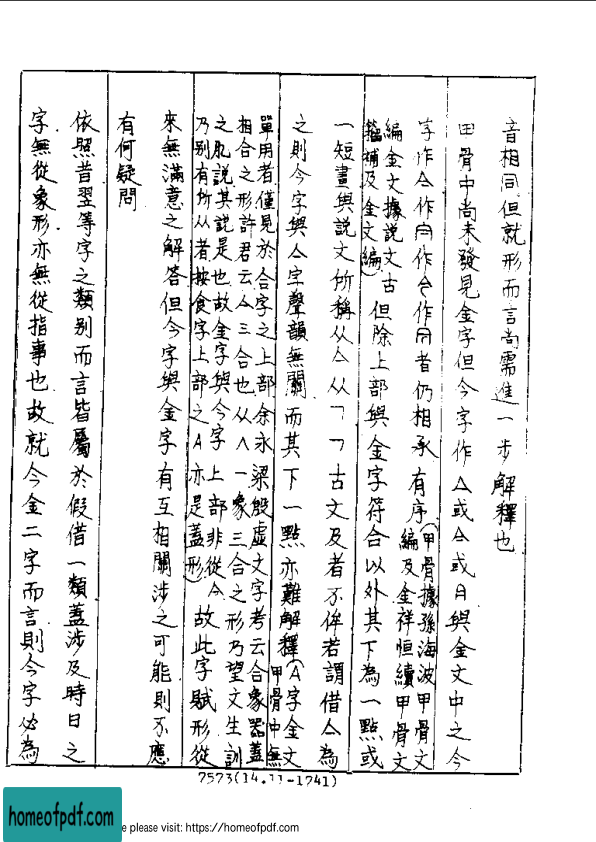 音相同但就形而言尚需進一步解釋也
甲骨中尚未發見金字但今字作亼或今或日與金文中之今
字作亼作今作仐作今者仍相承有序(甲骨據孫海波甲骨文
編及金祥恒續甲骨文
編金文據說文古
籀補及金文編)但除上部與金字符合以外其下為一點或
一短畫與說文所稱从亼从㇕㇕古文及者不侔若謂借亼為
之則今字與亼字聲韻無關而其下一點亦難解釋(亼字金文
甲骨中無
單用者僅見於合字之上部余永梁殷虛文字考云合象器蓋
相合之形許君云亼三合也从入一象三合之形乃望文生訓
之肊說其說是也故金字與今字上部非從亼
乃别有所从者按食字上部之亼亦是蓋形)故此字賦形從
來無滿意之解答但今字與金字有互相關涉之可能則不應
有何疑問
依照昔翌等字之類别而言皆屬於假借一類蓋涉及時日之
字無從象形亦無從指事也故就今金二字而言則今字必為
7573(14.11-1241)
homeofpdf.com
e please visit: https://homeofpdf.com